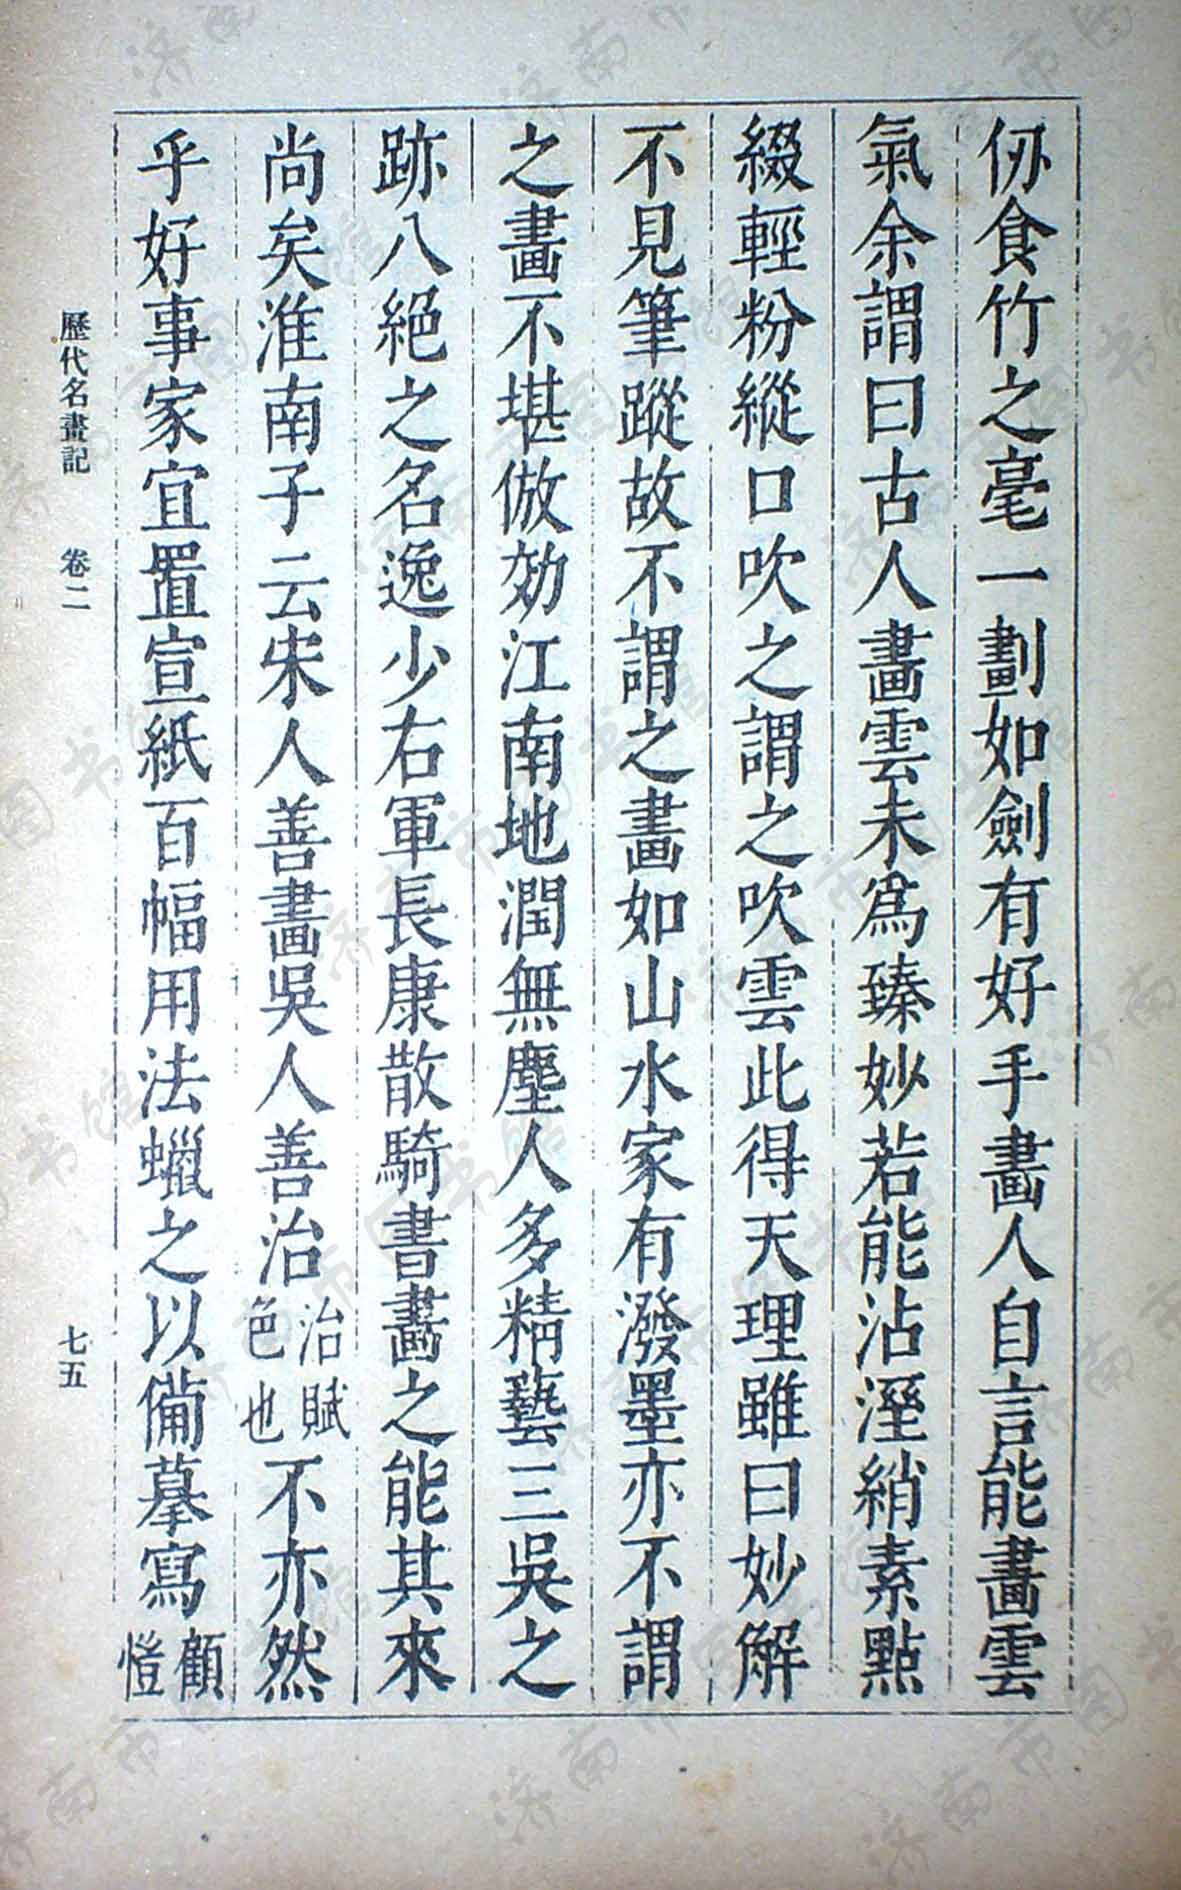 仭食竹之毫一劃如劍有好手畫人自言能畫雲
氣余謂曰古人畫雲未爲臻妙若能沾溼綃素點
綴輕粉縱口吹之謂之吹雲此得天理雖曰妙解
不見筆蹤故不謂之畫如山水家有潑墨亦不謂
之畫不堪倣効江南地潤無塵人多精藝三吳之
跡八絕之名逸少右軍長康散騎書畫之能其來
尚矣淮南子云宋人善畫吳人善治治賦色也不亦然
乎好事家宜置宣紙百幅用法蠟之以備摹寫顧愷
歷代名畫記 卷二 七五
济南市图书馆